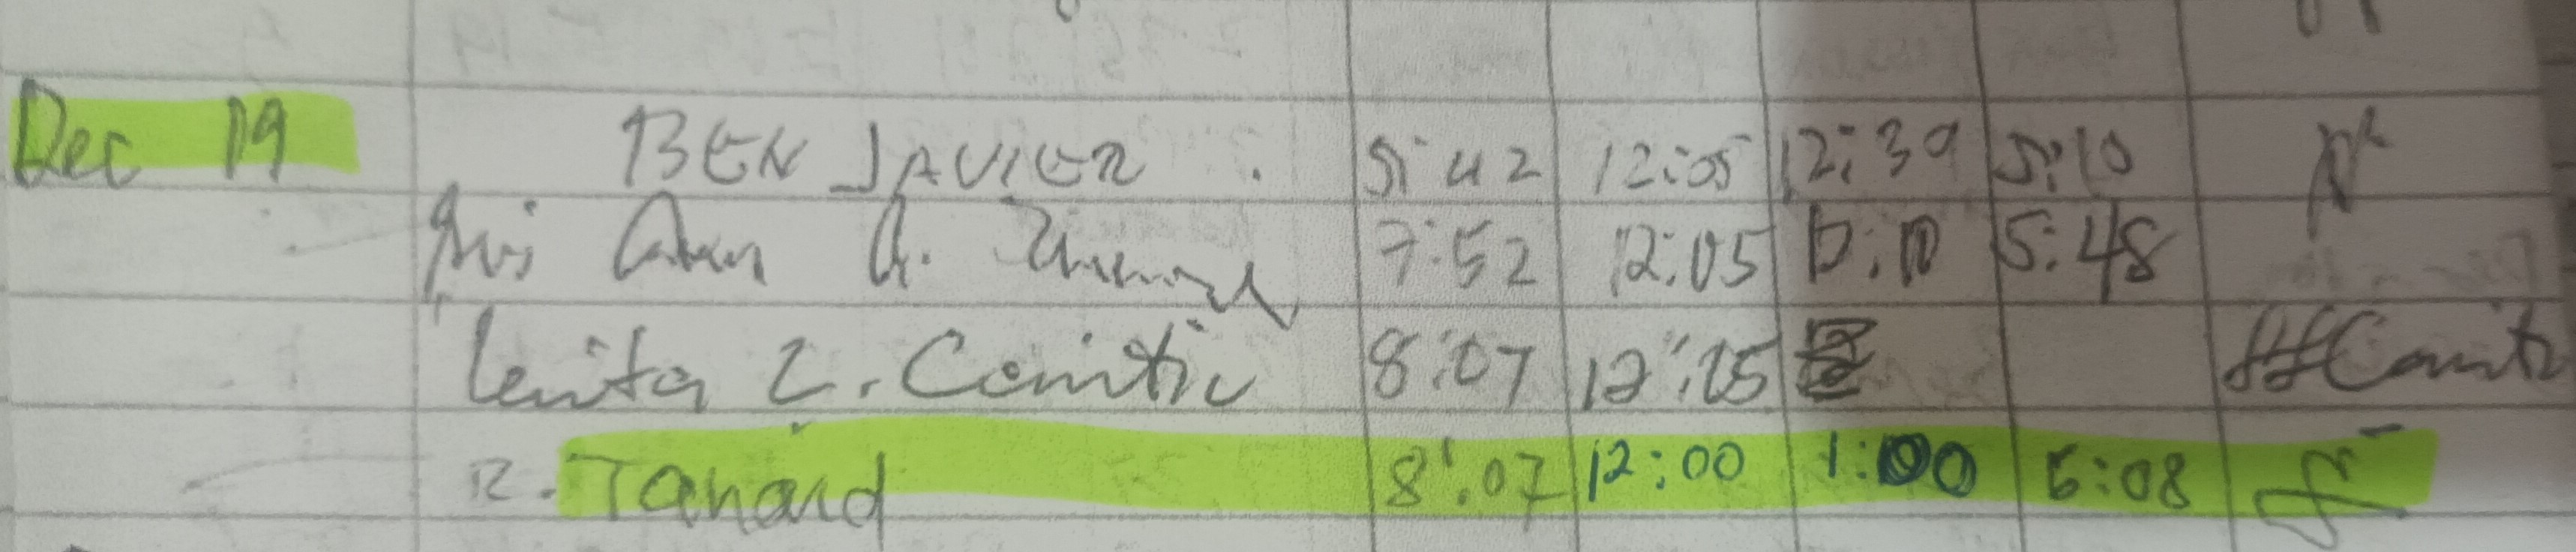 Dec 19 BEN JAVIER . 5:42 12:05 12:39 5:10
Ann A. 7:52 12:05 12:10 5:48
Lenita L. 8:07 12:15
R. Tanard 8:07 12:00 1:00 5:08